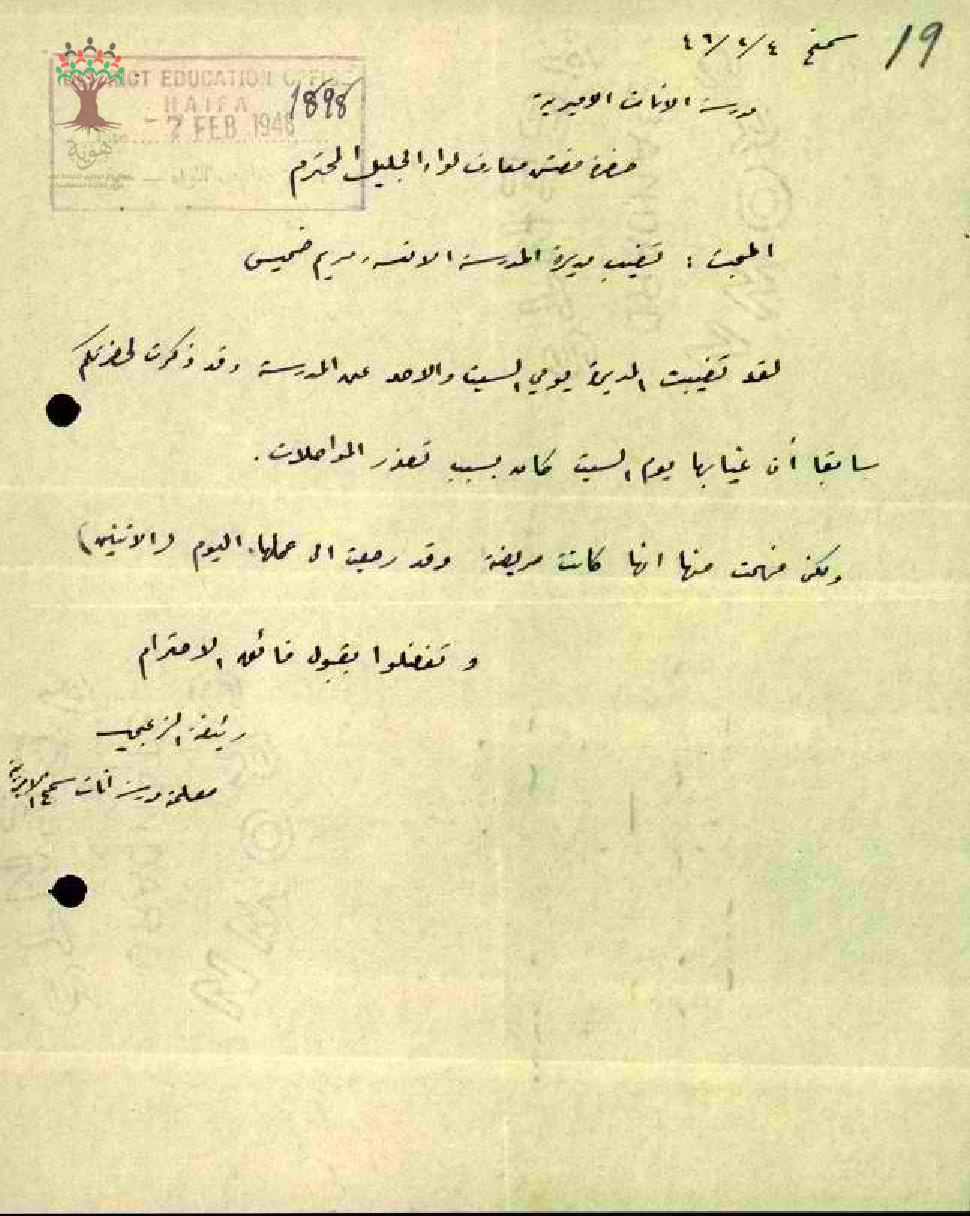 19
سمخ ٤٦/٢/٤
مدرسة الاناث الاميرية
DISTRICT EDUCATION OFFICE
HAIFA
1898
- 7 FEB 1946
هوية
حضرة مفتش معارف لواء الجليل المحترم
المبحث : تغيب مديرة المدرسة الانسه مريم خميس
لقد تغيبت المديرة يومي السبت والاحد عن المدرسة وقد ذكرت لحضرتكم
سابقا أن غيابها يوم السبت كان بسبب تعذر المواصلات .
ولكن فهمت منها انها كانت مريضة وقد رجعت الى عملها اليوم (الاثنين)
وتفضلوا بقبول فائق الاحترام
الزعبي
معلمة مدرسة اناث سمخ الاميرية